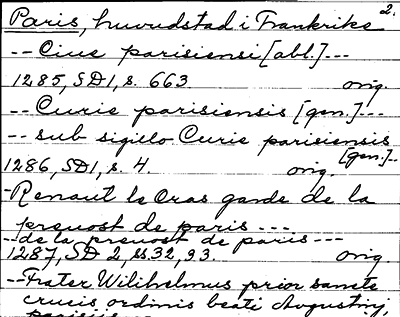 2.
Paris, huvudstad i Frankrike
-- Ciue parisiensi [abl.] ---
1285, SD 1, s. 663. orig.
-- Curie parisiensis [gen.] ---
-- sub sigillo Curie parisiensis
[gen.] --
1286, SD 1, s. 4. orig.
- Renaut le Cras garde de la
preuost de paris ---
-- de la preuost de paris ---
1287, SD 2, ss. 32, 93. orig
-- Frater Wilihelmus prior sancte
crucis ordinis beati Augustinj,
parisiis ---